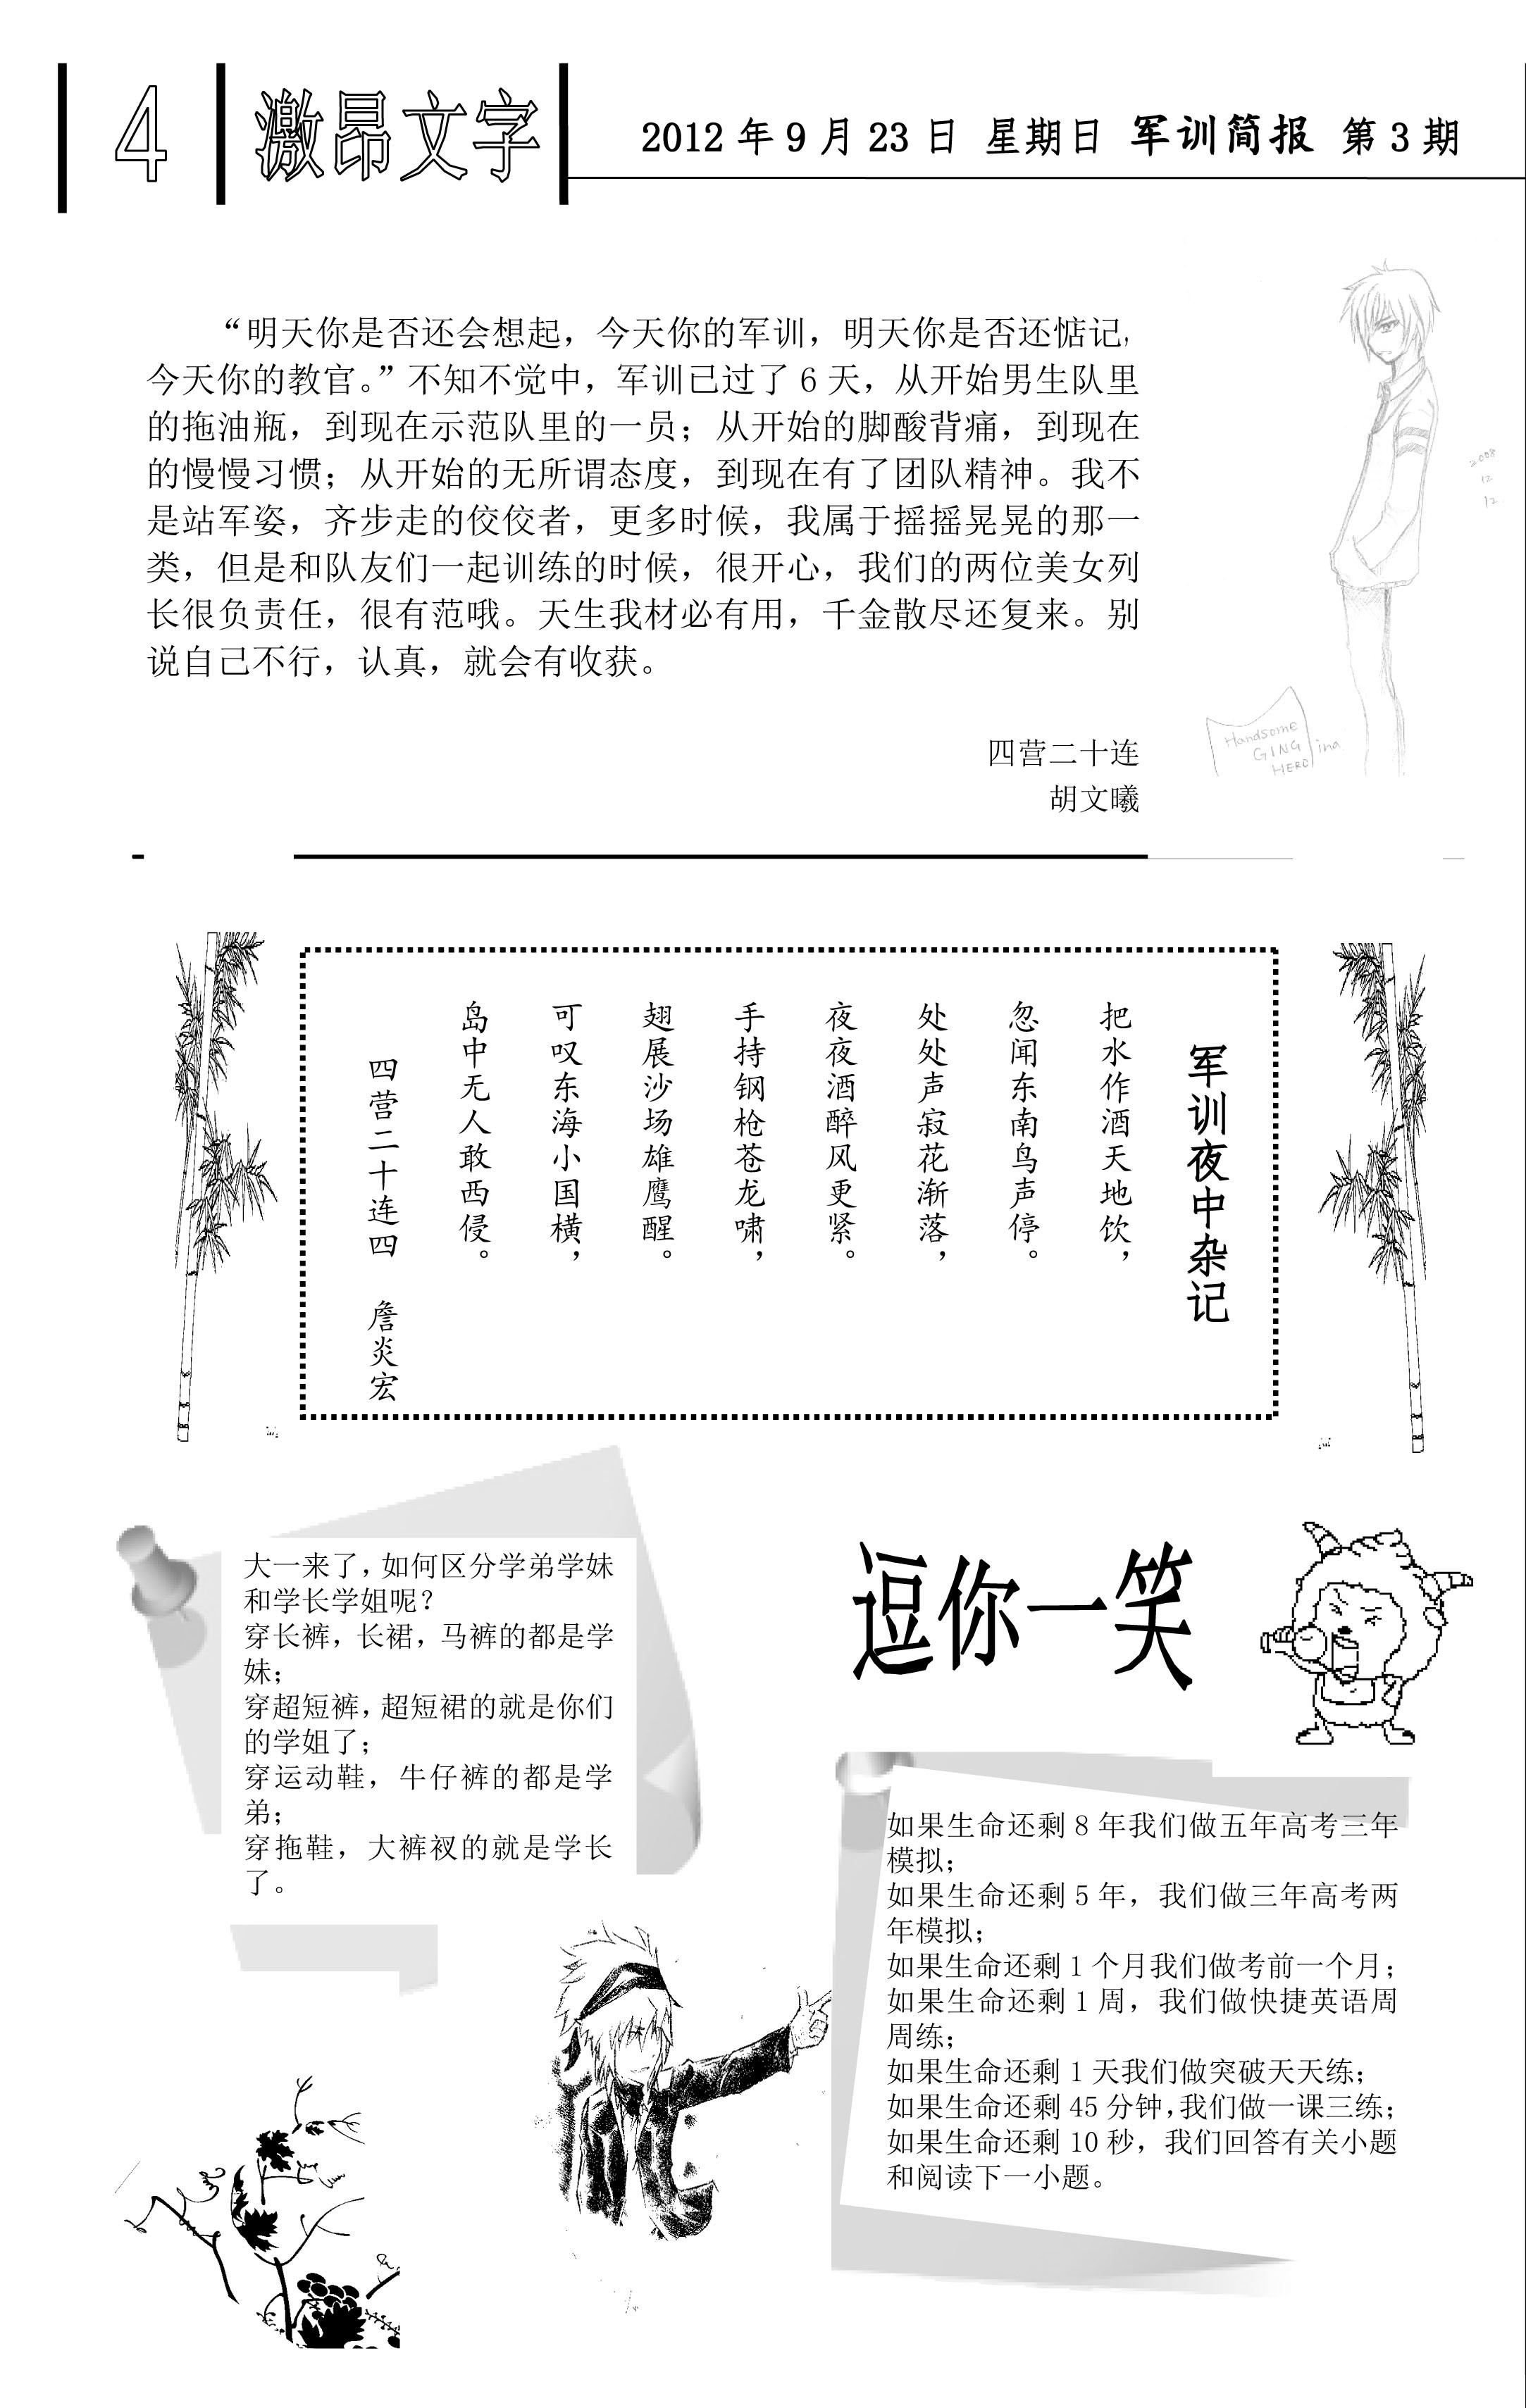 4
激昂文字
2012 年 9 月 23 日 星期日 军训简报 第 3 期
“明天你是否还会想起，今天你的军训，明天你是否还惦记，
今天你的教官。”不知不觉中，军训已过了 6 天，从开始男生队里
的拖油瓶，到现在示范队里的一员；从开始的脚酸背痛，到现在
的慢慢习惯；从开始的无所谓态度，到现在有了团队精神。我不
是站军姿，齐步走的佼佼者，更多时候，我属于摇摇晃晃的那一
类，但是和队友们一起训练的时候，很开心，我们的两位美女列
长很负责任，很有范哦。天生我材必有用，千金散尽还复来。别
说自己不行，认真，就会有收获。
四营二十连
胡文曦
2008
12
12
Handsome
GING
HERO
ina
军训夜中杂记
把水作酒天地饮，
忽闻东南鸟声停。
处处声寂花渐落，
夜夜酒醉风更紧。
手持钢枪苍龙啸，
翅展沙场雄鹰醒。
可叹东海小国横，
岛中无人敢西侵。
四营二十连四 詹炎宏
大一来了，如何区分学弟学妹
和学长学姐呢？
穿长裤，长裙，马裤的都是学
妹；
穿超短裤，超短裙的就是你们
的学姐了；
穿运动鞋，牛仔裤的都是学
弟；
穿拖鞋，大裤衩的就是学长
了。
逗你一笑
如果生命还剩 8 年我们做五年高考三年
模拟；
如果生命还剩 5 年，我们做三年高考两
年模拟；
如果生命还剩 1 个月我们做考前一个月；
如果生命还剩 1 周，我们做快捷英语周
周练；
如果生命还剩 1 天我们做突破天天练；
如果生命还剩 45 分钟，我们做一课三练；
如果生命还剩 10 秒，我们回答有关小题
和阅读下一小题。